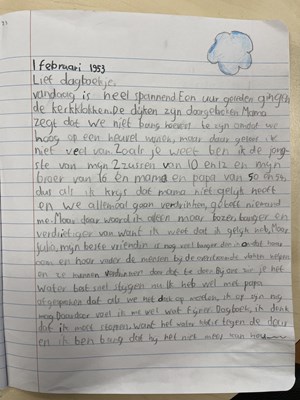 1 Februari 1953
Lief dagboekje,
vandaag is heel spannend Een uur geleden gingen
de kerkklokken. De dijken zijn doorgebroken Mama
zegt dat we niet bang hoeven te zijn omdat we
hoog op een heuvel wonen, maar daar geloof ik
niet veel van. Zoals je weet ben ik de jong-
ste van mijn 2 zussen van 10 en 12 en mijn
broer van 16 en mama en papa van 50 en 54,
dus als ik krijs dat mama niet gelijk heeft
en we allemaal gaan verdrinken, gelooft niemand
me. Maar daar word ik alleen maar bozer, banger en
verdrietiger van want ik weet dat ik gelijk heb. Maar
Julia, mijn beste vriendin is nog veel banger dan
en haar vader de mensen bij de overstroomde dijken helpen
en ze kunnen verdrinken door dat te doen. Bij ons zie je het
water best snel stijgen nu. Ik heb wel met papa
afgesproken dat als we het dak op moeten, ik op zijn rug
mag Daardoor voel ik me wel wat fijner. Dagboek, ik denk
dat ik moet stoppen, want het water tegen de deur
en ik ben bang dat hij het niet meer